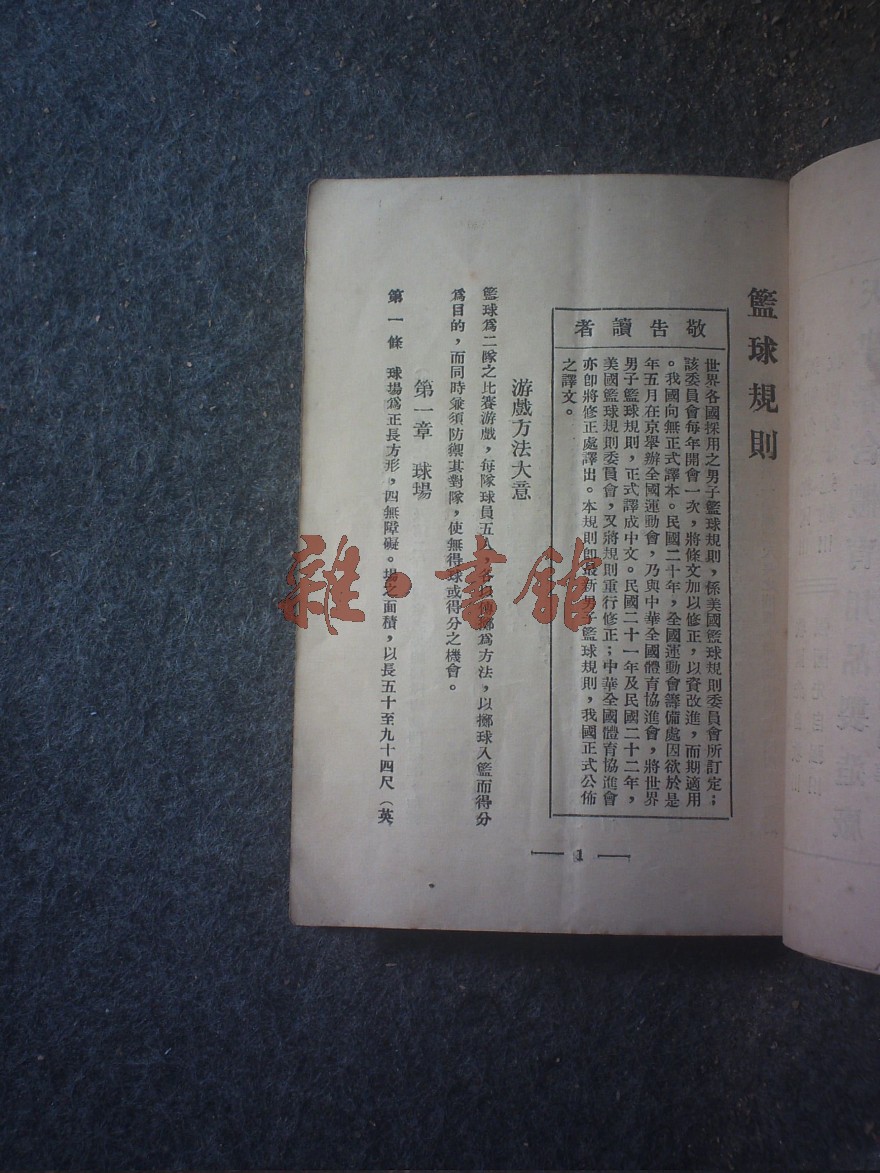 籃球規則
敬告讀者
世界各國採用之男子籃球規則，係美國籃球規則委員會所訂定；
該委員會每年開會一次，將條文加以修正，以資改進，而期適用
。我國向無正式譯本。民國二十年，全國運動會籌備處因欲於是
年五月在京舉辦全國運動會，乃與中華全國體育協進會，將世界
男子籃球規則，正式譯成中文。民國二十一年及民國二十二年，
美國籃球規則委員會，又將規則重行修正；中華全國體育協進會
亦卽將修正處譯出。本規則卽最新男子籃球規則，我國正式公佈
之譯文。
游戲方法大意
籃球爲二隊之比賽游戲，每隊球員五人，各以傳擲爲方法，以擲球入籃而得分
爲目的，而同時兼須防禦其對隊，使無得球或得分之機會。
第一章　球場
第一條　球場爲正長方形，四無障礙。場之面積，以長五十至九十四尺（英
1
雜·書館